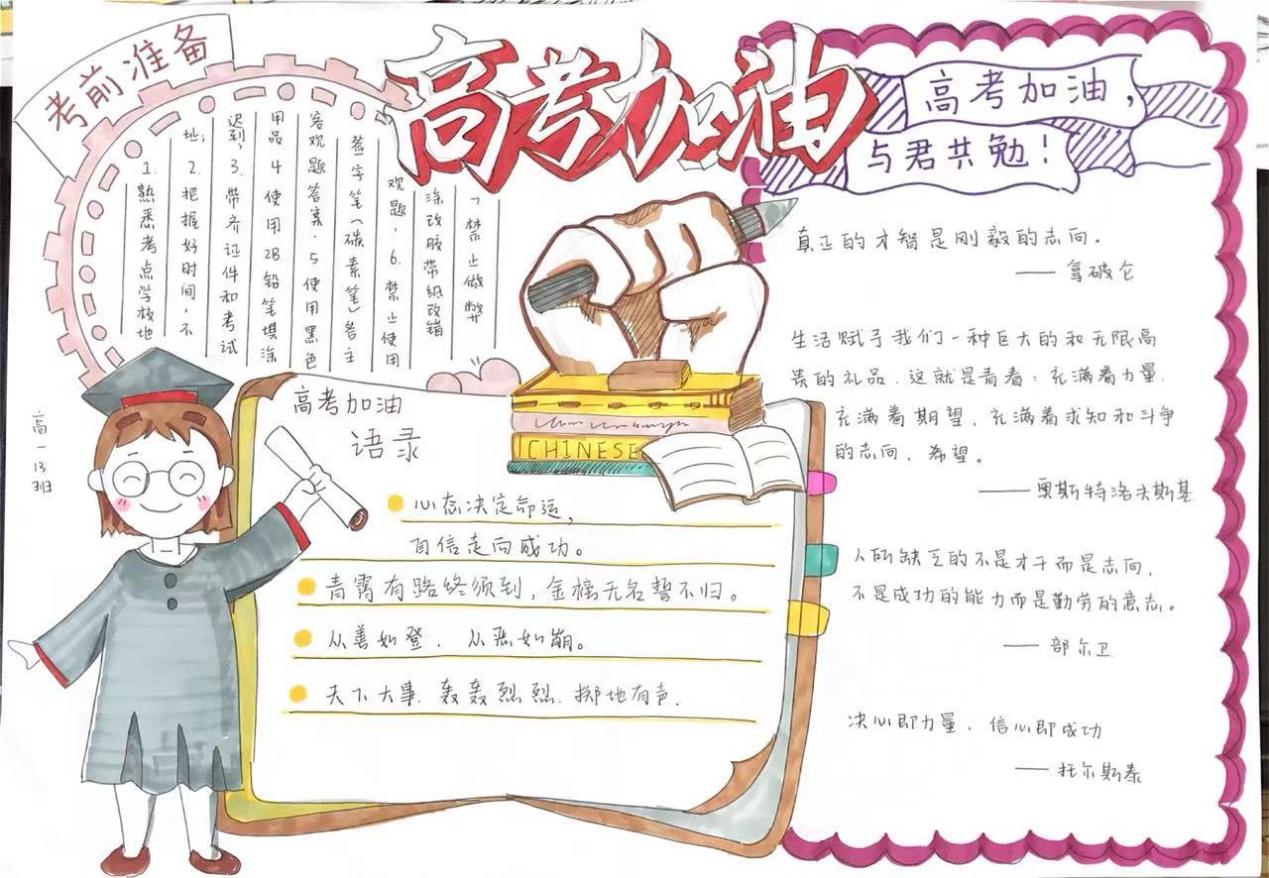 考前准备
1. 熟悉考点学校地
址；2. 把握好时间，不
迟到；3. 带齐证件和考试
用品 4 使用2B铅笔填涂
客观题答案. 5 使用黑色
签字笔(碳素笔)答主
观题，6. 禁止使用
涂改胶带纸改错
7 禁止做弊
高考加油
高考加油，
与君共勉！
真正的才智是刚毅的志向。
—— 拿破仑
生活赋予我们一种巨大的和无限高
贵的礼品，这就是青春：充满着力量，
充满着期望，充满着求知和斗争
的志向，希望。
——奥斯特洛夫斯基
人所缺乏的不是才干而是志向，
不是成功的能力而是勤劳的意志。
—— 部尔卫
决心即力量，信心即成功
—— 托尔斯泰
CHINESE
高一13班
高考加油
语录
心态决定命运，
自信走向成功。
青霄有路终须到，金榜无名誓不归。
从善如登，从恶如崩。
天下大事，轰轰烈烈，掷地有声.